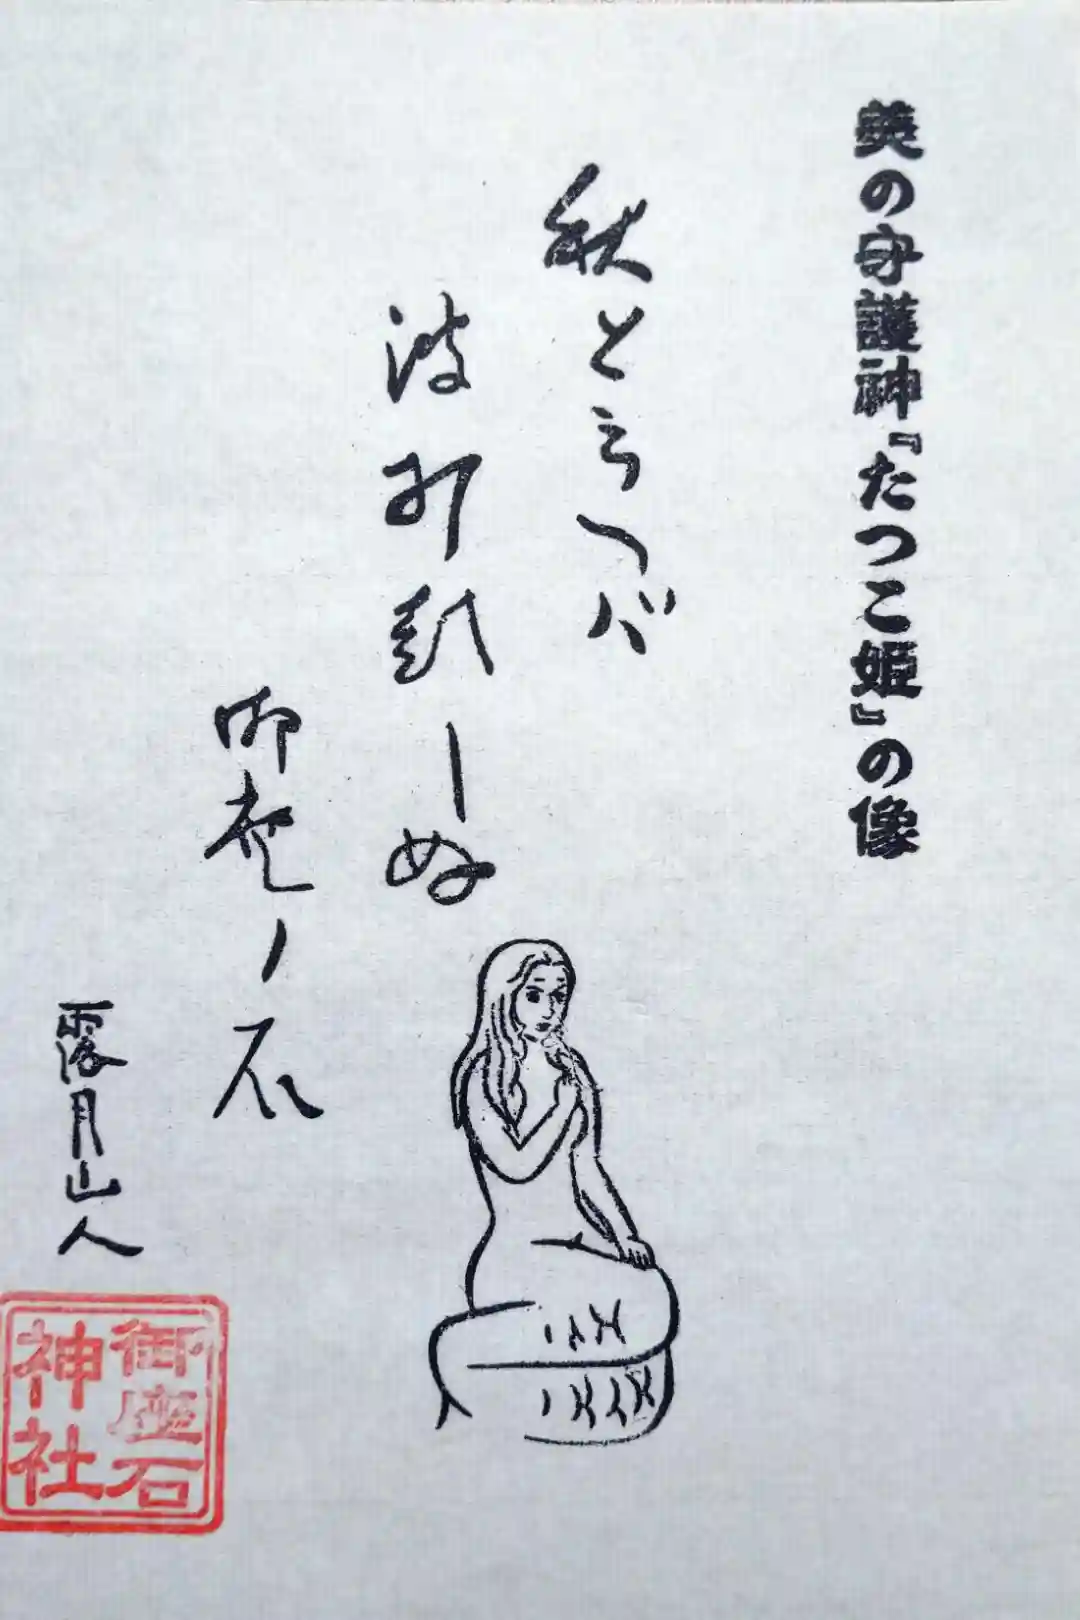 美の守護神『たつこ姫』の像
秋と言へバ
波打起しぬ
御座ノ石
露月山人
御座石
神社